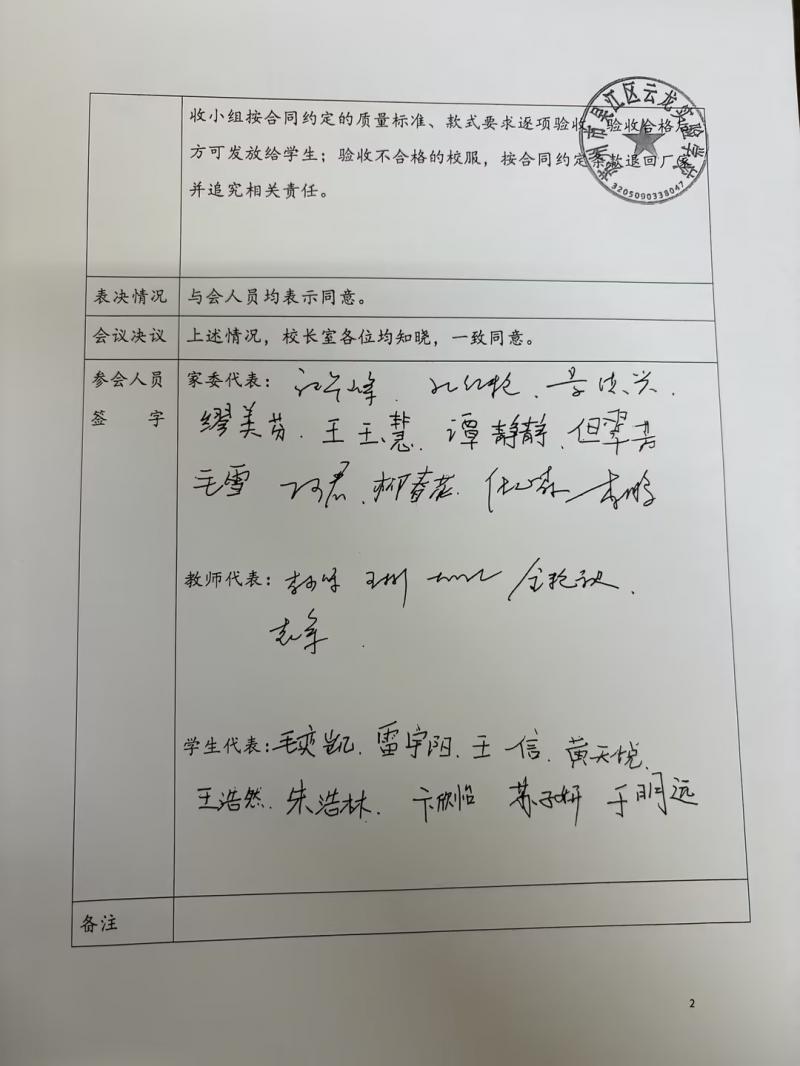 收小组按合同约定的质量标准、款式要求逐项验收，验收合格后
方可发放给学生；验收不合格的校服，按合同约定条款退回厂家
并追究相关责任。
苏州市吴江区云龙实验学校
3205090338047
表决情况 与会人员均表示同意。
会议决议 上述情况，校长室各位均知晓，一致同意。
参会人员 家委代表：
签 字 缪美芬. 王玉慧. 谭静静. 但翠芳
毛雪 柳春花. 李鹏
教师代表：
学生代表：毛奕凯. 雷宇阳. 王信. 黄天悦.
王浩然. 朱浩林. 卞欣怡 苏子妍 于明远
备注
2